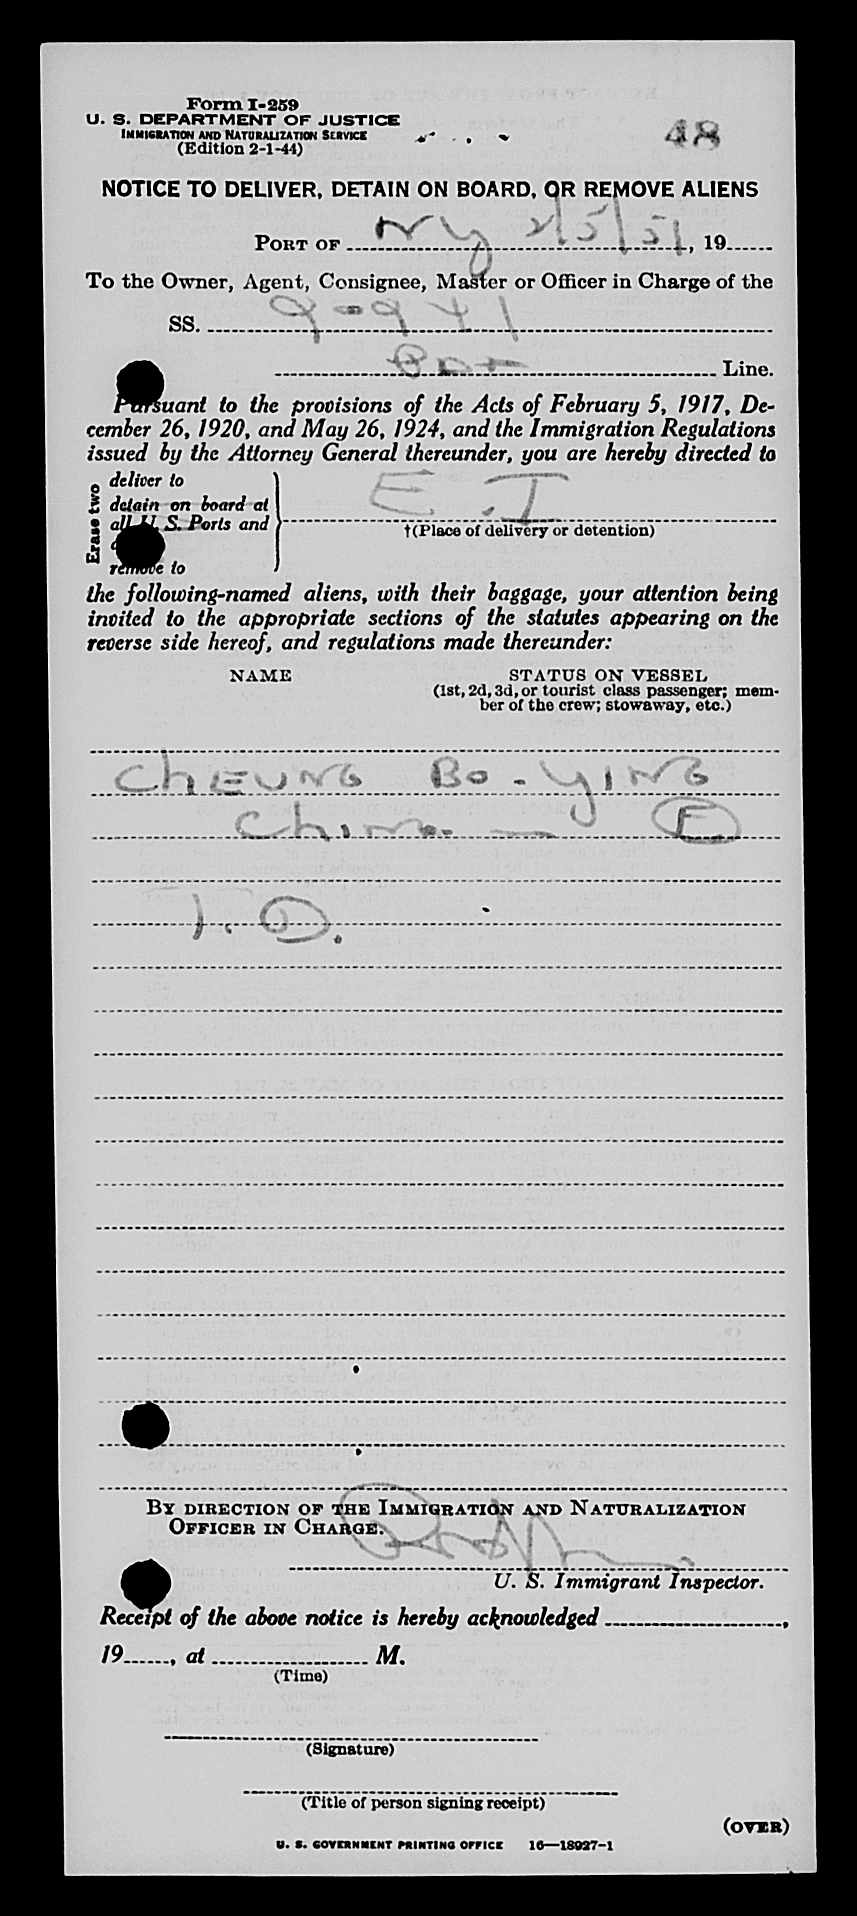 Form I-259
U. S. DEPARTMENT OF JUSTICE
IMMIGRATION AND NATURALIZATION SERVICE
(Edition 2-1-44)
48
NOTICE TO DELIVER, DETAIN ON BOARD, OR REMOVE ALIENS
PORT OF NY 2/5/51, 19
To the Owner, Agent, Consignee, Master or Officer in Charge of the
SS. 9-9941
Line.
Pursuant to the provisions of the Acts of February 5, 1917, De-
cember 26, 1920, and May 26, 1924, and the Immigration Regulations
issued by the Attorney General thereunder, you are hereby directed to
Erase two
deliver to
detain on board at
all U. S. Ports and
remove to
E. I
†(Place of delivery or detention)
the following-named aliens, with their baggage, your attention being
invited to the appropriate sections of the statutes appearing on the
reverse side hereof, and regulations made thereunder:
NAME STATUS ON VESSEL
(1st, 2d, 3d, or tourist class passenger; mem-
ber of the crew; stowaway, etc.)
CHEUNG BO-YING
China — F
I. O.
BY DIRECTION OF THE IMMIGRATION AND NATURALIZATION
OFFICER IN CHARGE.
U. S. Immigrant Inspector.
Receipt of the above notice is hereby acknowledged ,
19 , at M.
(Time)
(Signature)
(Title of person signing receipt)
(OVER)
U. S. GOVERNMENT PRINTING OFFICE 16—18927-1